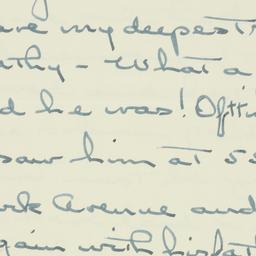 are my deepest
athy - What a
d he was! Oftti
saw him at 55
rk Avenue and
gain with his fat